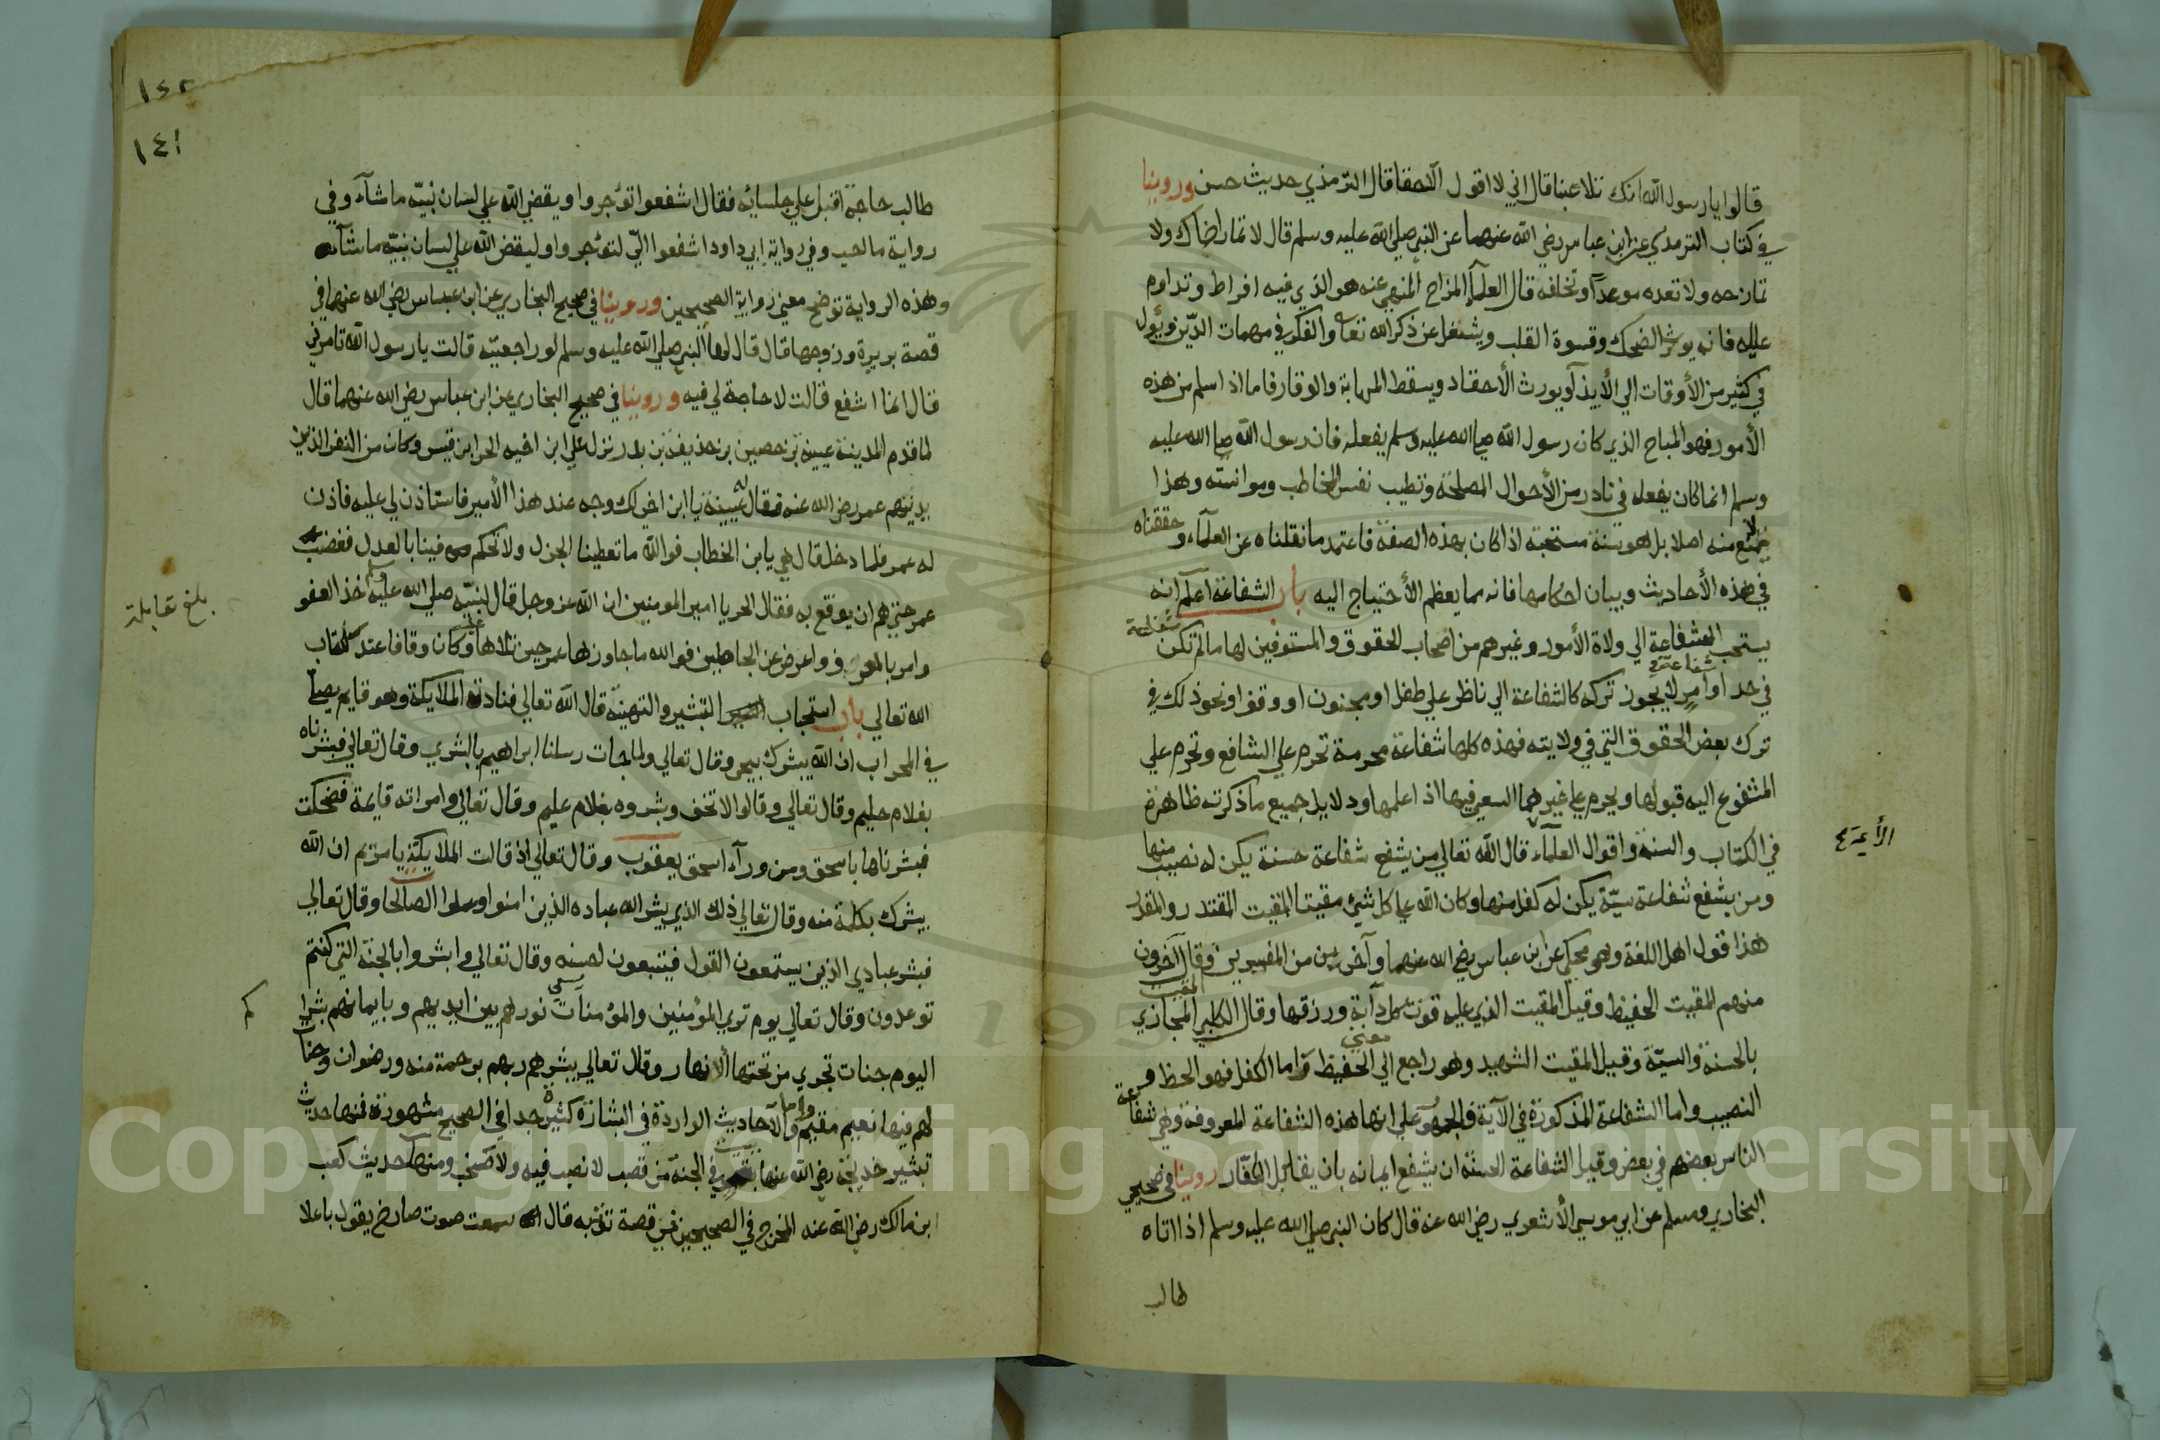 قالوا يارسول الله انك تلاعبنا قال اني لا اقول الا حقا قال الترمذي حديث حسن وروينا
في كتاب الترمذي عن ابن عباس رضي الله عنهما عن النبي صلي الله عليه وسلم قال لا تمار اخاك ولا
تمازحه ولا تعده موعدا وتخلفه قال العلمآء المزاح المنهي عنه هو الذي فيه افراط وتداوم
عليه فانه يورث الضحك وقسوة القلب ويشغل عن ذكر الله تعالى والفكر في مهمات الدّين ويؤل
في كثير من الأوقات الي الأيذآ ويورث الأحقاد ويسقط المهابة والوقار فاما اذا سلم من هذه
الأمور فهو المباح الذي كان رسول الله صلي الله عليه وسلم يفعله فان رسول الله صلي الله عليه
وسلم انما كان يفعله في نادر من الأحوال المصلحة وتطييب نفس المخاطب وموانسته وهذا
لا يمنع منه اصلا بل هو سنة مستحبة اذا كان بهذه الصفة فاعتمد ما نقلناه عن العلمآء وحققناه
في هذه الأحاديث وبيان احكامها فانه مما يعظم الأحتياج اليه باب الشفاعة اعلم انه
يستحب الشفاعة الي ولاة الأمور وغيرهم من اصحاب الحقوق والمستوفين لها مالم تكن شفاعة
في حد او شفاعة في امر لا يجوز تركه كالشفاعة الي ناظر علي طفل او مجنون او وقف او نحو ذلك في
ترك بعض الحقوق التي في ولايته فهذه كلها شفاعة محرمة تحرم علي الشافع وتحرم علي
المشفوع اليه قبولها ويحرم علي غيرهما السعي فيها اذا علمها ودلايل جميع ما ذكرته ظاهرة
في الكتاب والسنة واقوال العلمآء قال الله تعالي من يشفع شفاعة حسنة يكن له نصيب منها
الأيمة
ومن يشفع شفاعة سيّة يكن له كفل منها وكان الله علي كل شئ مقيتا المقيت المقتدر والمقدر
هذا قول اهل اللغة وهو محكي عن ابن عباس رضي الله عنهما وآخرين من المفسرين وقال آخرون
منهم المقيت الحفيظ وقيل المقيت الذي عليه قوت كل دآبة ورزقها وقال الكلبي المقيت المجازي
بالحسنة والسيّة وقيل المقيت الشهيد وهو راجع الي معني الحفيظ وآما الكفل فهو الحظ و
النصيب واما الشفاعة المذكورة في الآية فالجمهور علي انها هذه الشفاعة المعروفة وهي شفاعة
الناس بعضهم في بعض وقيل الشفاعة الحسنة ان يشفع ايمانه بان يقاتل الكفّار روينا في صحيحي
البخاري ومسلم عن ابي موسي الأشعري رضي الله عنه قال كان النبي صلي الله عليه وسلم اذا اتاه
طالب
١٤٢
١٤١
طالب حاجة اقبل علي جلسائه فقال اشفعوا توءجروا ويقضي الله علي لسان نبيّه ما شآء وفي
رواية ما احب وفي رواية ابي داود اشفعوا اليّ لتوءجروا وليقض الله علي لسان نبيّه ما شآء
وهذه الرواية توضح معني رواية الصحيحين وروينا في صحيح البخاري عن ابن عباس رضي الله عنهما في
قصة بريرة وزوجها قال قال لها النبي صلي الله عليه وسلم لو راجعتيه قالت يارسول الله تامرني
قال انما اشفع قالت لا حاجة لي فيه وروينا في صحيح البخاري عن ابن عباس رضي الله عنهما قال
لما قدم المدينة عيينة بن حصين بن حذيفة بن بدر نزل علي ابن اخيه الحر ابن قيس وكان من النفر الذين
يدنيهم عمر رضي الله عنه فقال له عيينة يا ابن اخي لك وجه عند هذا الأمير فاستاذن لي عليه فاذن
له عمر فلما دخل قال هي يا بن الخطاب فوالله ما تعطينا الجزل ولا تحكم فينا بالعدل فغضب
عمر حتي هم ان يوقع به فقال الحر يا امير المومنين ان الله عز وجل قال لنبيّه صلي الله عليه وسلم خذ العفو
بلغ مقابلة
وامر بالعرف واعرض عن الجاهلين فوالله ما جاوزها عمر حين تلاها عليه وكان وقافا عند كتاب
الله تعالي باب استحباب التبشير والتهنية قال الله تعالي فنادته الملايكة وهو قايم يصلي
في المحراب ان الله يبشرك بيحيي وقال تعالي ولما جات رسلنا ابراهيم بالبشري وقال تعالي فبشرناه
بغلام حليم وقال تعالي وقالوا لا تخف وبشروه بغلام عليم وقال تعالي وامراته قايمة فضحكت
فبشرناها باسحق ومن ورآء اسحق يعقوب وقال تعالي اذ قالت الملايكة يا مريم ان الله
يبشرك بكلمة منه وقال تعالي ذلك الذي يبشر الله عباده الذين امنوا وعملوا الصالحات وقال تعالي
فبشر عبادي الذين يستمعون القول فيتبعون احسنه وقال تعالي وابشروا بالجنة التي كنتم
توعدون وقال تعالي يوم تري المؤمنين والمؤمنات يسعي نورهم بين ايديهم وبايمانهم بشراكم
اليوم جنات تجري من تحتها الأنهار وقال تعالي يبشرهم ربهم برحمة منه ورضوان وجنات
لهم فيها نعيم مقيم واما الآحاديث الواردة في البشارة كثيرة جدا في الصحيح مشهورة فمنها حديث
تبشير خديجة رضي الله عنها ببيت في الجنة من قصب لا نصب فيه ولا صخب ومنها حديث كعب
ابن مالك رضي الله عنه المخرج في الصحيحين في قصة توبته قال سمعت صوت صارخ يقول باعلا
Copyright © King Saud University
195